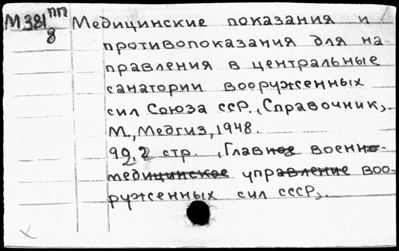 М381 пп Медицинские показания и
8 противопоказания для на-
правления в центральные
санатории вооруженных
сил Союза ССР., Справочник,
М., Медгиз, 1948.
92, 2 стр. , Главное военно-
медицинское управление воо-
руженных сил СССР,.